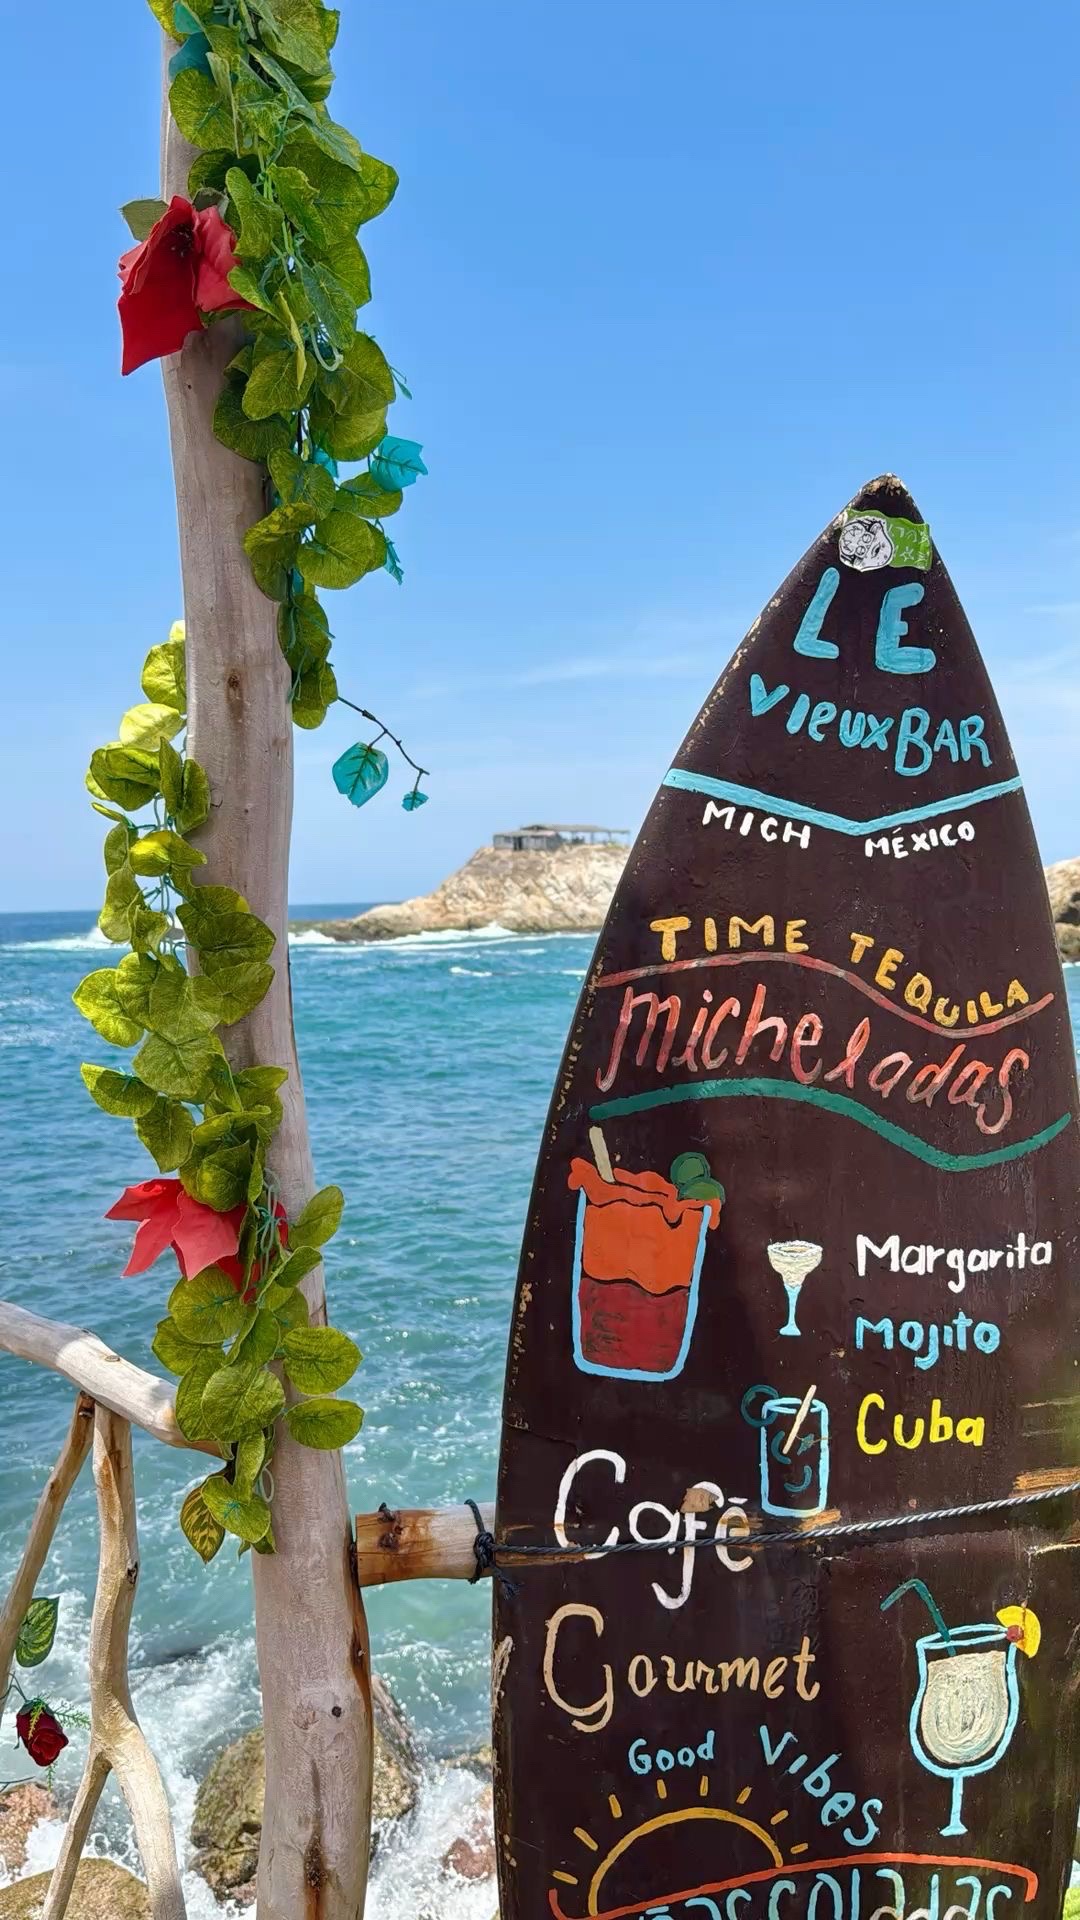 LE
VIeuxBAR
MICH MÉXICO
TIME TEQUILA
micheladas
Margarita
Mojito
Cuba
Café
Gourmet
Good Vibes